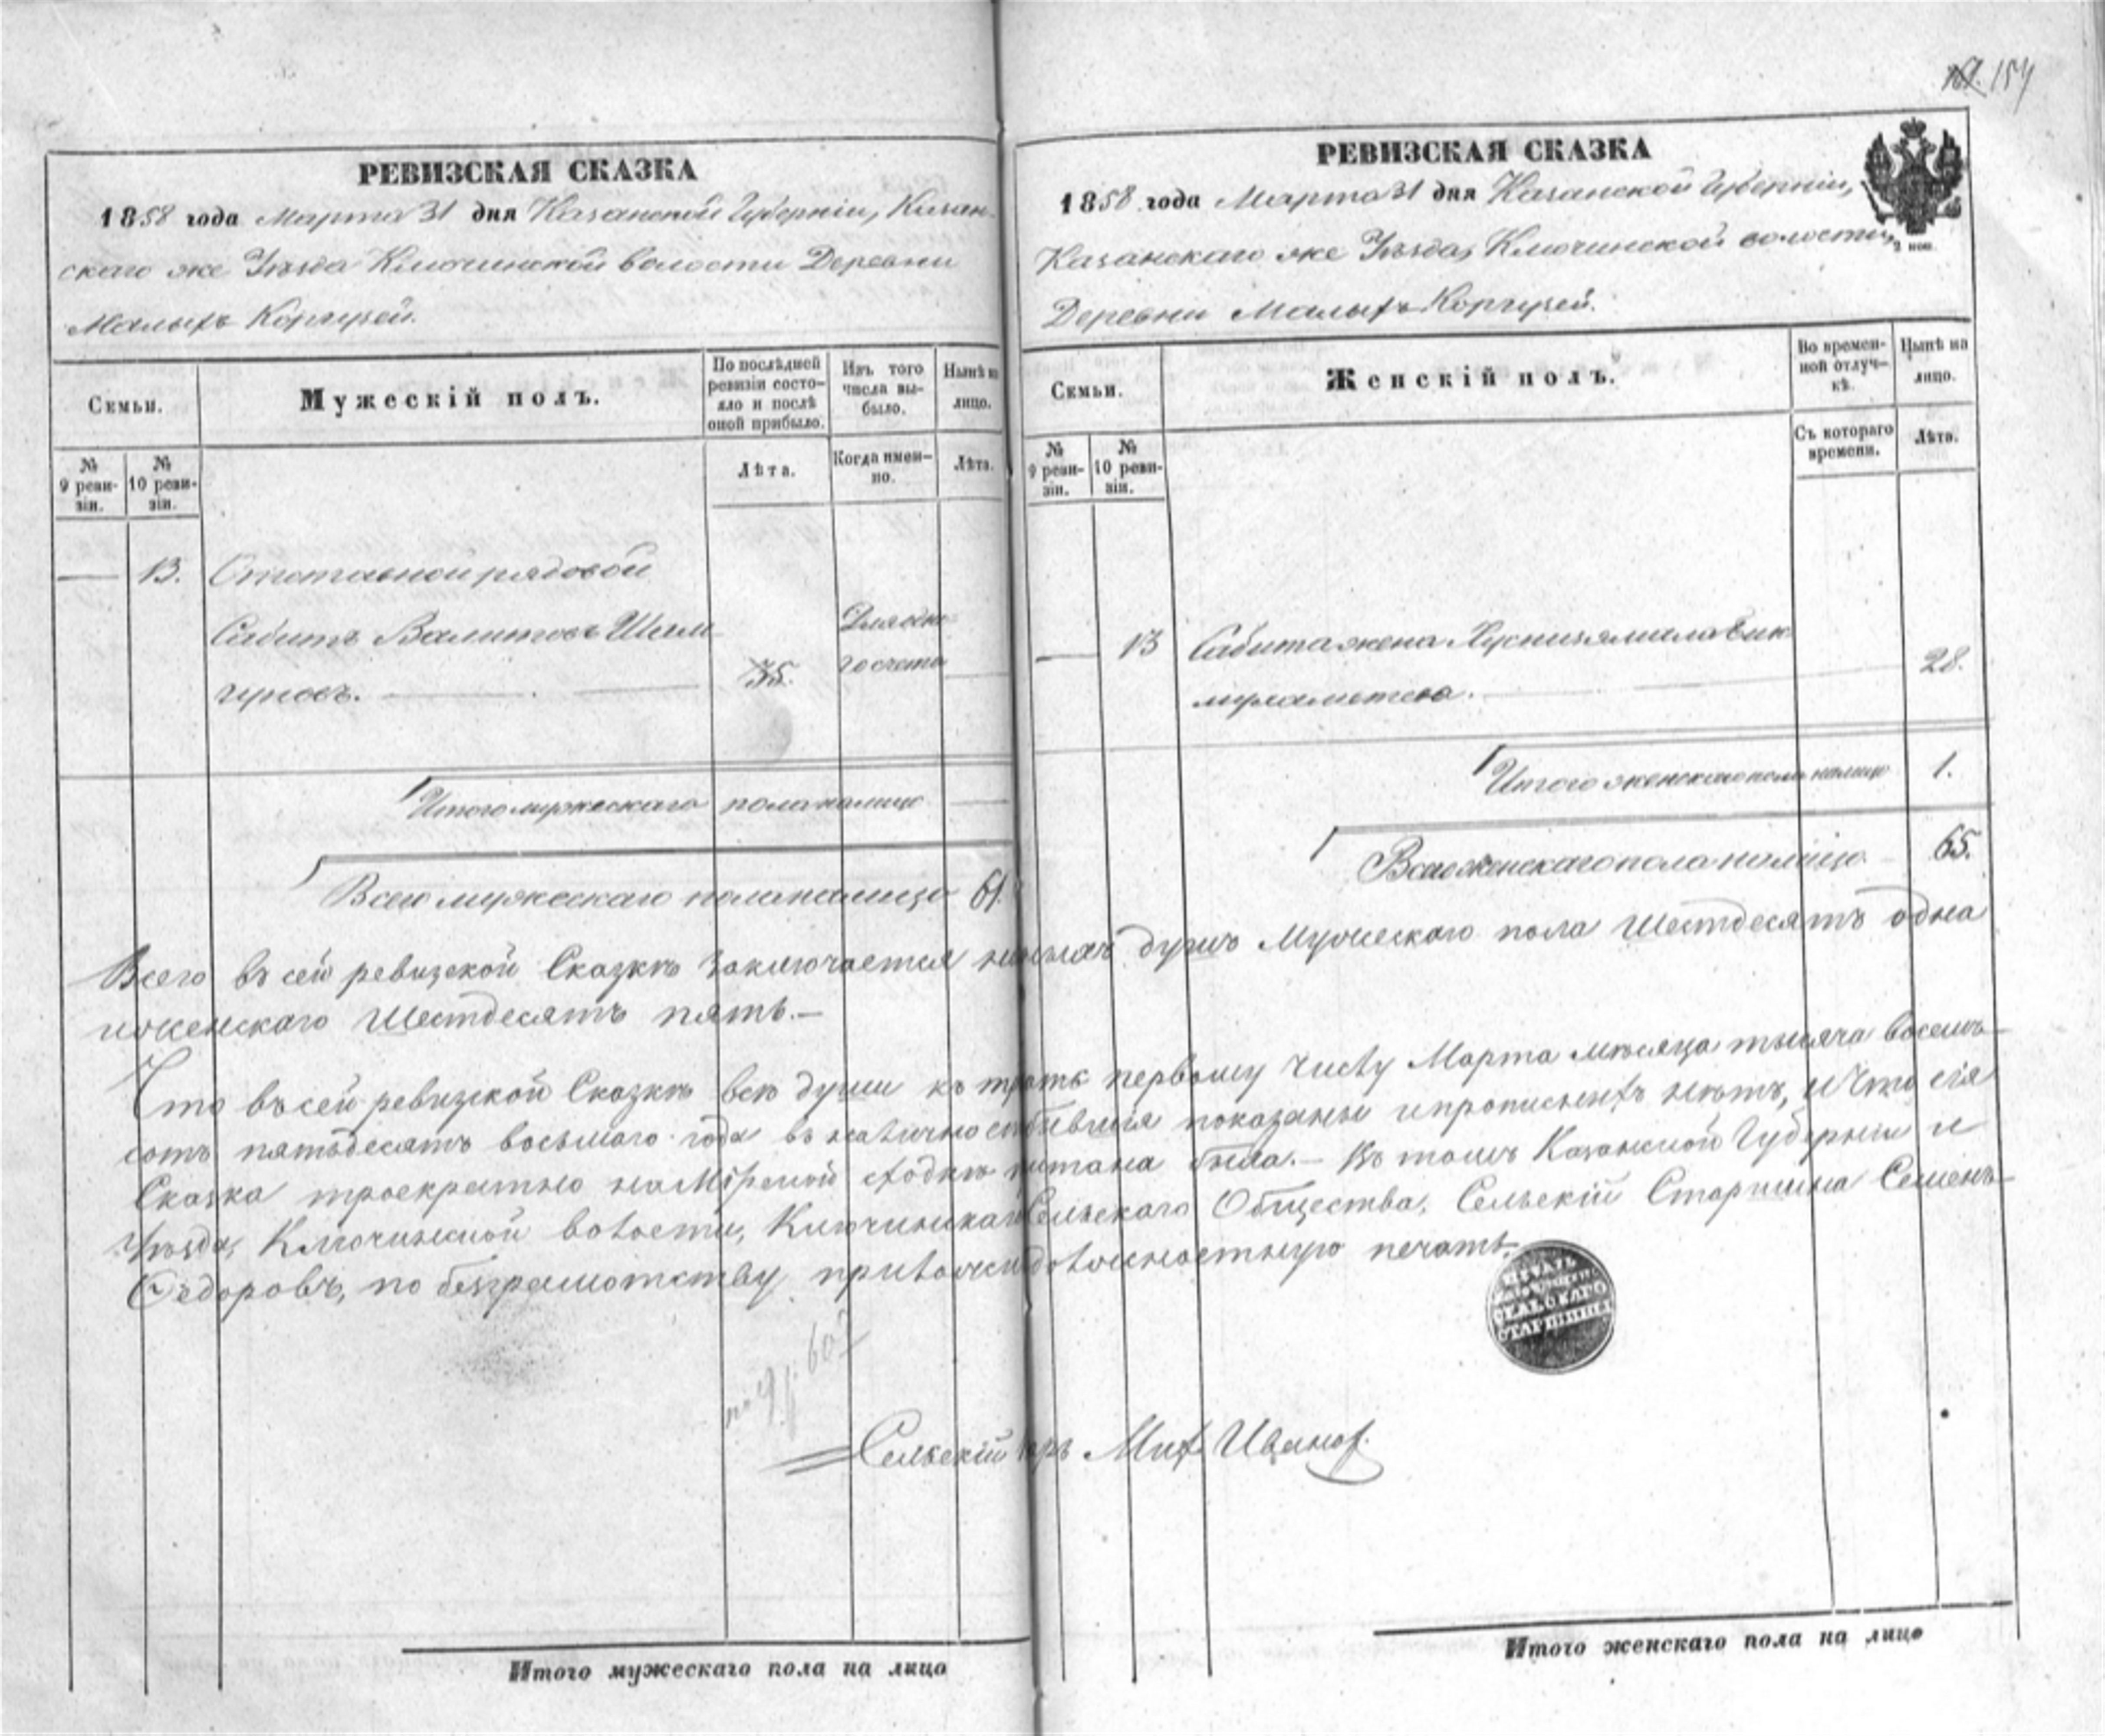 154
РЕВИЗСКАЯ СКАЗКА
1858 года Марта 31 дня Казанской Губерніи, Казан-
скаго же Уѣзда Ключинской волости Деревни
Малыхъ Коргузей.
Семьи.
Мужескій полъ.
По послѣдней ревизіи состо-яло и послѣ оной прибыло.
Изъ того числа вы-было.
Нынѣ на лицо.
№ 9 реви-зіи.
№ 10 реви-зіи.
Лѣта.
Когда имен-но.
Лѣта.
— 13. Отставной рядовой
Сабитъ Валитовъ Шам-
гуновъ. — 35. Для одно-
го счета —
Итого мужескаго пола налицо —
Всего мужескаго пола налицо 61.
РЕВИЗСКАЯ СКАЗКА
1858 года Марта 31 дня Казанской Губерніи,
Казанскаго же Уѣзда, Ключинской волости,
Деревни Малыхъ Коргузей.
Семьи.
Женскій полъ.
Во времен-ной отлуч-кѣ.
Нынѣ на лицо.
№ 9 реви-зіи.
№ 10 реви-зіи.
Съ котораго времени.
Лѣта.
— 13 Сабита жена
28.
Итого женскаго пола налицо 1.
Всего женскаго пола налицо 65.
Всего въ сей ревизской Сказкѣ заключается душъ Мужескаго пола Шестдесятъ одна
и женскаго Шестдесятъ пять.—
Что въ сей ревизской Сказкѣ всѣ души къ первому числу Марта мѣсяца тысяча восемь-
сотъ пятьдесятъ восьмаго года въ показаны и прописныхъ нѣтъ, и что сія
Сказка троекратно на Мірской сходкѣ читана была.— Въ томъ Казанской Губерніи и
Уѣзда, Ключинской волости, Ключинскаго Сельскаго Общества, Сельскій Старшина Семенъ
Ѳедоровъ, по безграмотству приложилъ должностную печать.
ПЕЧАТЬ
СЕЛЬСКАГО
СТАРШИНЫ
Сельскій Мих. Иванов.
Итого мужескаго пола на лицо
Итого женскаго пола на лицо